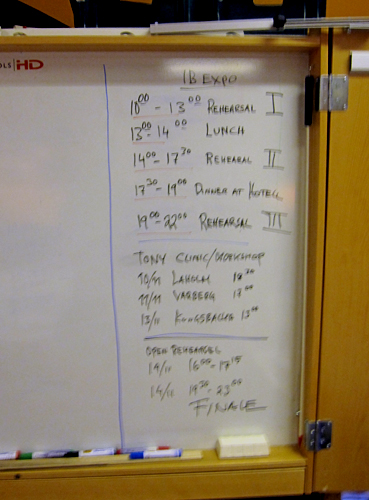 OLS HD
IB EXPO
10⁰⁰ - 13⁰⁰ REHEARSAL I
13⁰⁰ - 14⁰⁰ LUNCH
14⁰⁰ - 17³⁰ REHEARSAL II
17³⁰ - 19⁰⁰ DINNER AT HOTELL
19⁰⁰ - 22⁰⁰ REHEARSAL III
TONY CLINIC/WORKSHOP
10/11 LAHOLM 18³⁰
11/11 VARBERG 17⁰⁰
13/11 KUNGSBACKA 13⁰⁰
OPEN REHEARSEL
14/11 16⁰⁰-17¹⁵
14/11 19³⁰-23⁰⁰
FINALE